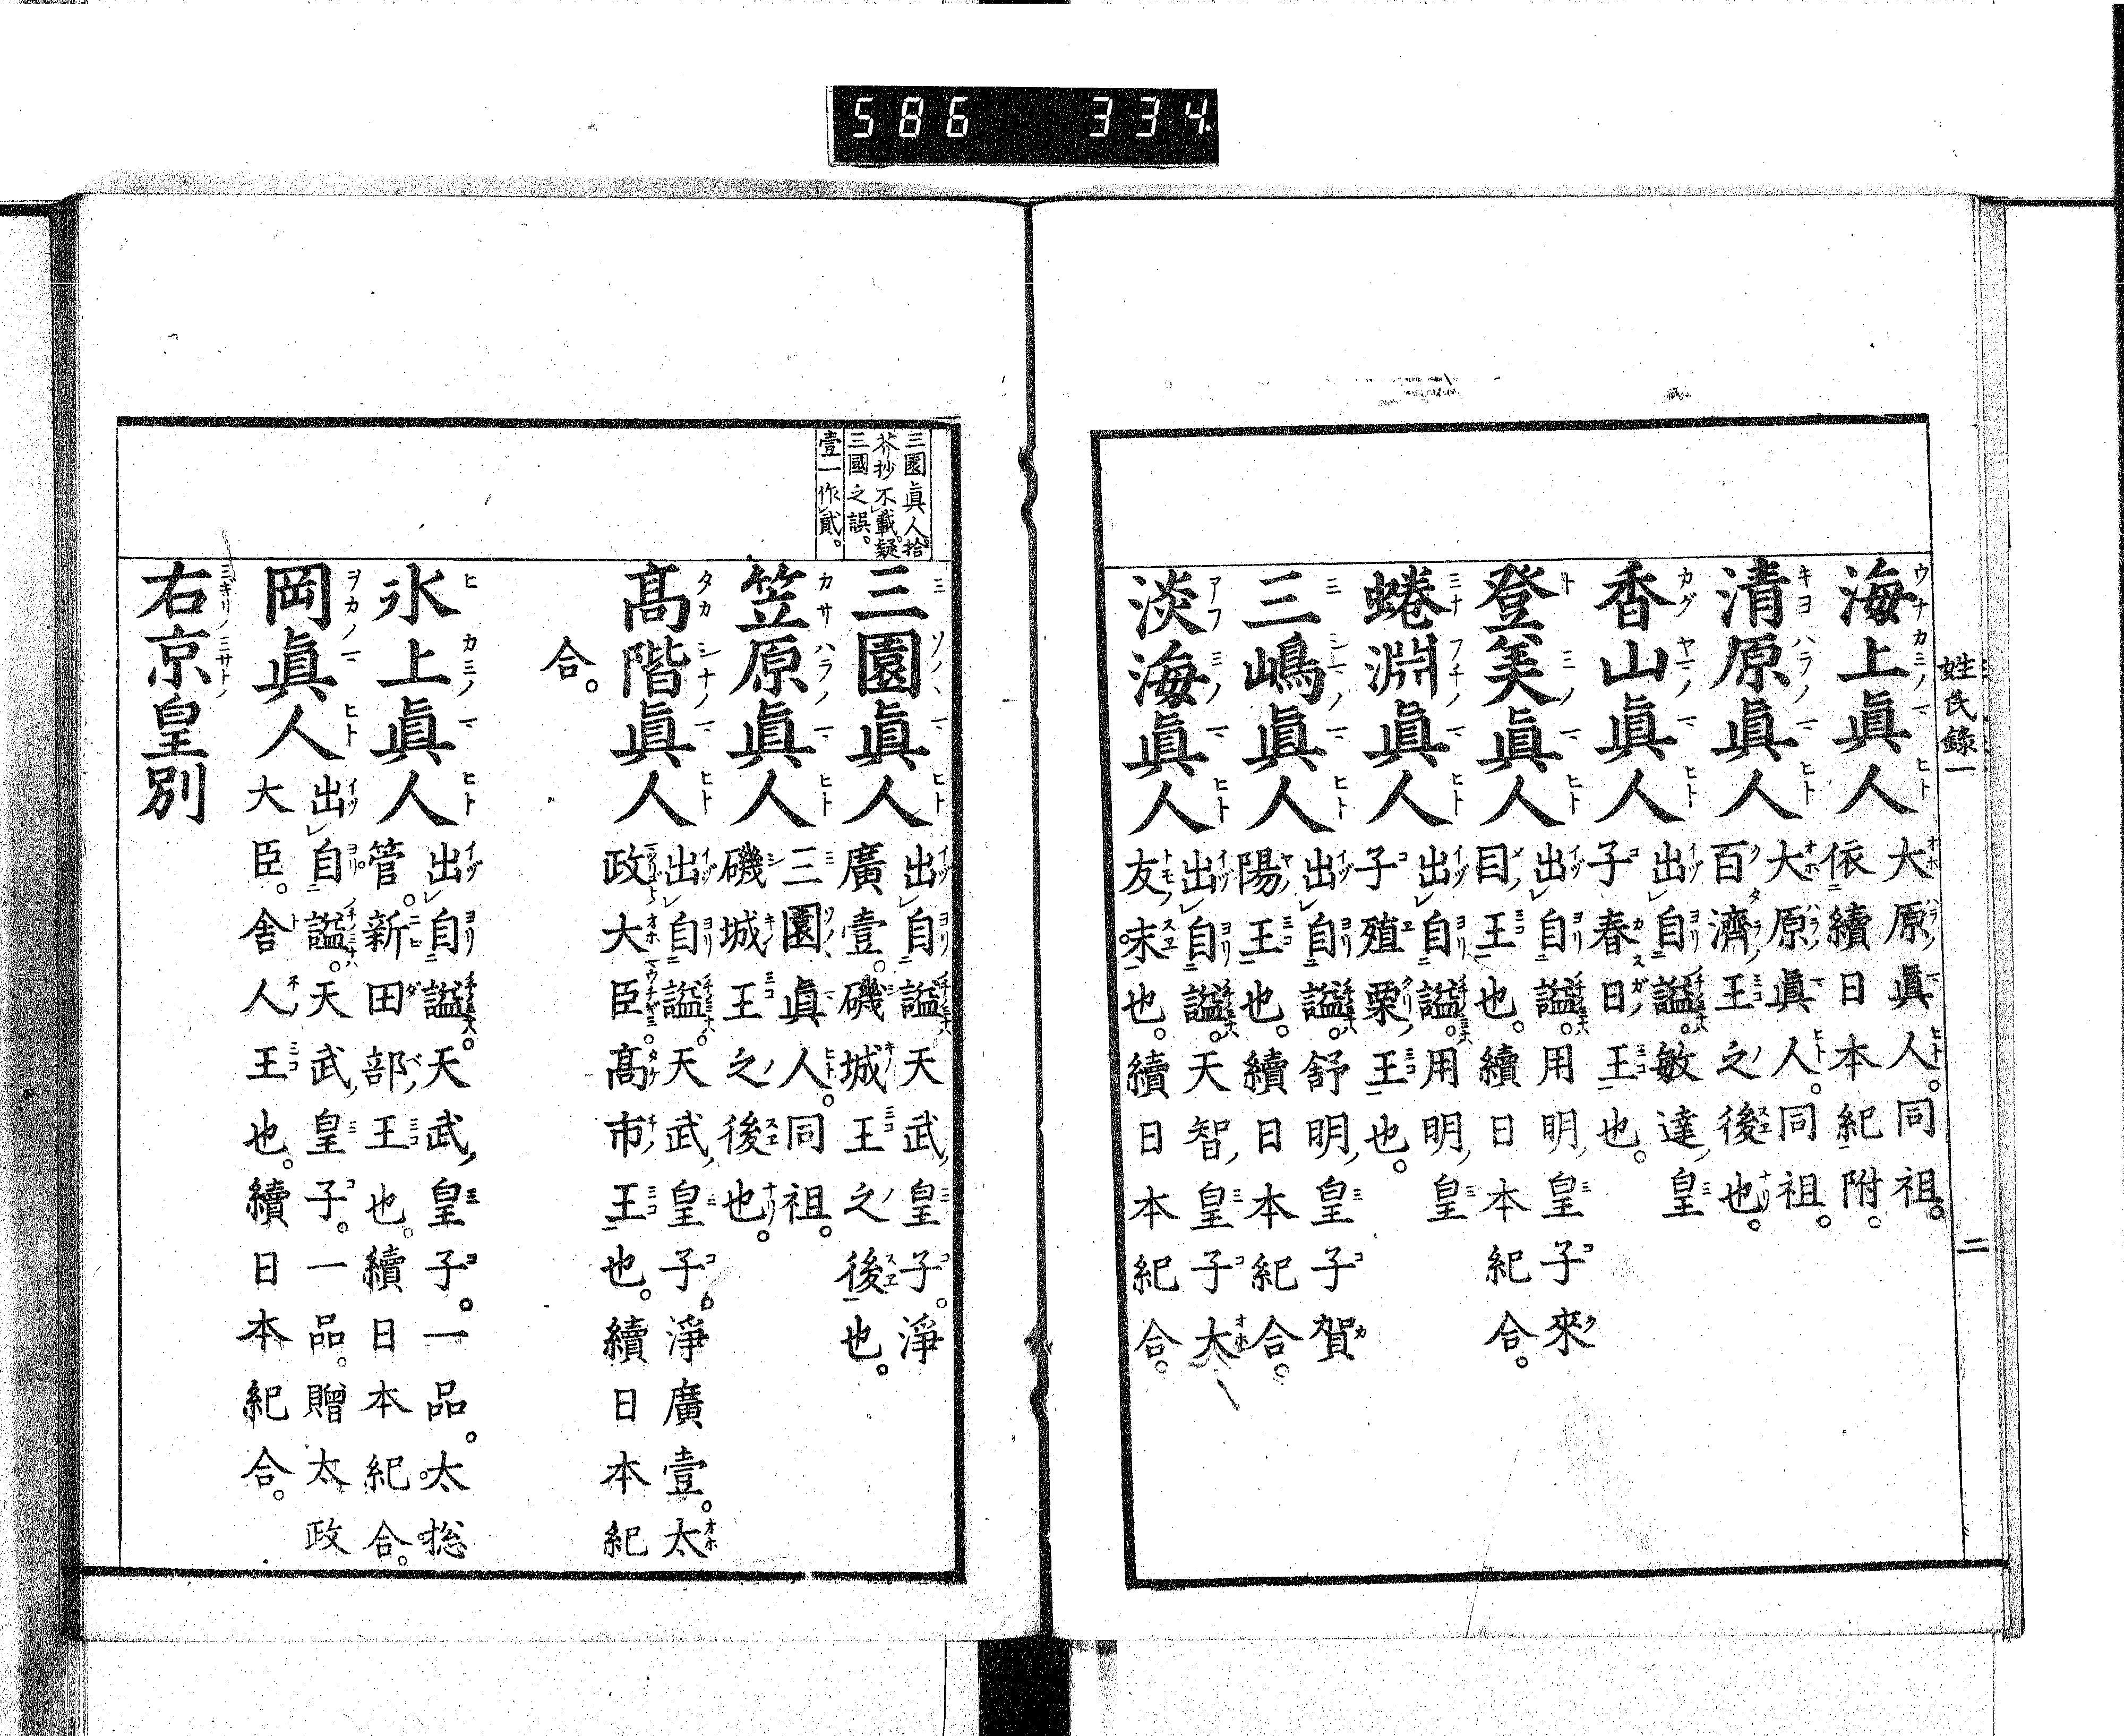 586 334
姓氏錄一
二
海上眞人 大原眞人。同祖。
依續日本紀附。
清原眞人 大原眞人。同祖。
百濟王之後也。
香山眞人 出自謚。敏達皇
子春日王也。
登美眞人 出自謚。用明皇子來
目王也。續日本紀合。
蜷淵眞人 出自謚。用明皇
子殖栗王也。
三嶋眞人 出自謚。舒明皇子賀
陽王也。續日本紀合。
淡海眞人 出自謚。天智皇子大
友末也。續日本紀合。
三園眞人拾
芥抄不載。疑
三國之誤。
壹一作貳。
三園眞人 出自謚天武皇子。淨
廣壹。磯城王之後也。
笠原眞人 三園眞人。同祖。
磯城王之後也。
髙階眞人 出自謚。天武皇子。淨廣壹。太
政大臣。髙市王也。續日本紀
合。
氷上眞人 出自謚。天武皇子。一品。太捴
管。新田部王也。續日本紀合。
岡眞人 出自謚。天武皇子。一品。贈太政
大臣。舎人王也。續日本紀合。
右京皇別